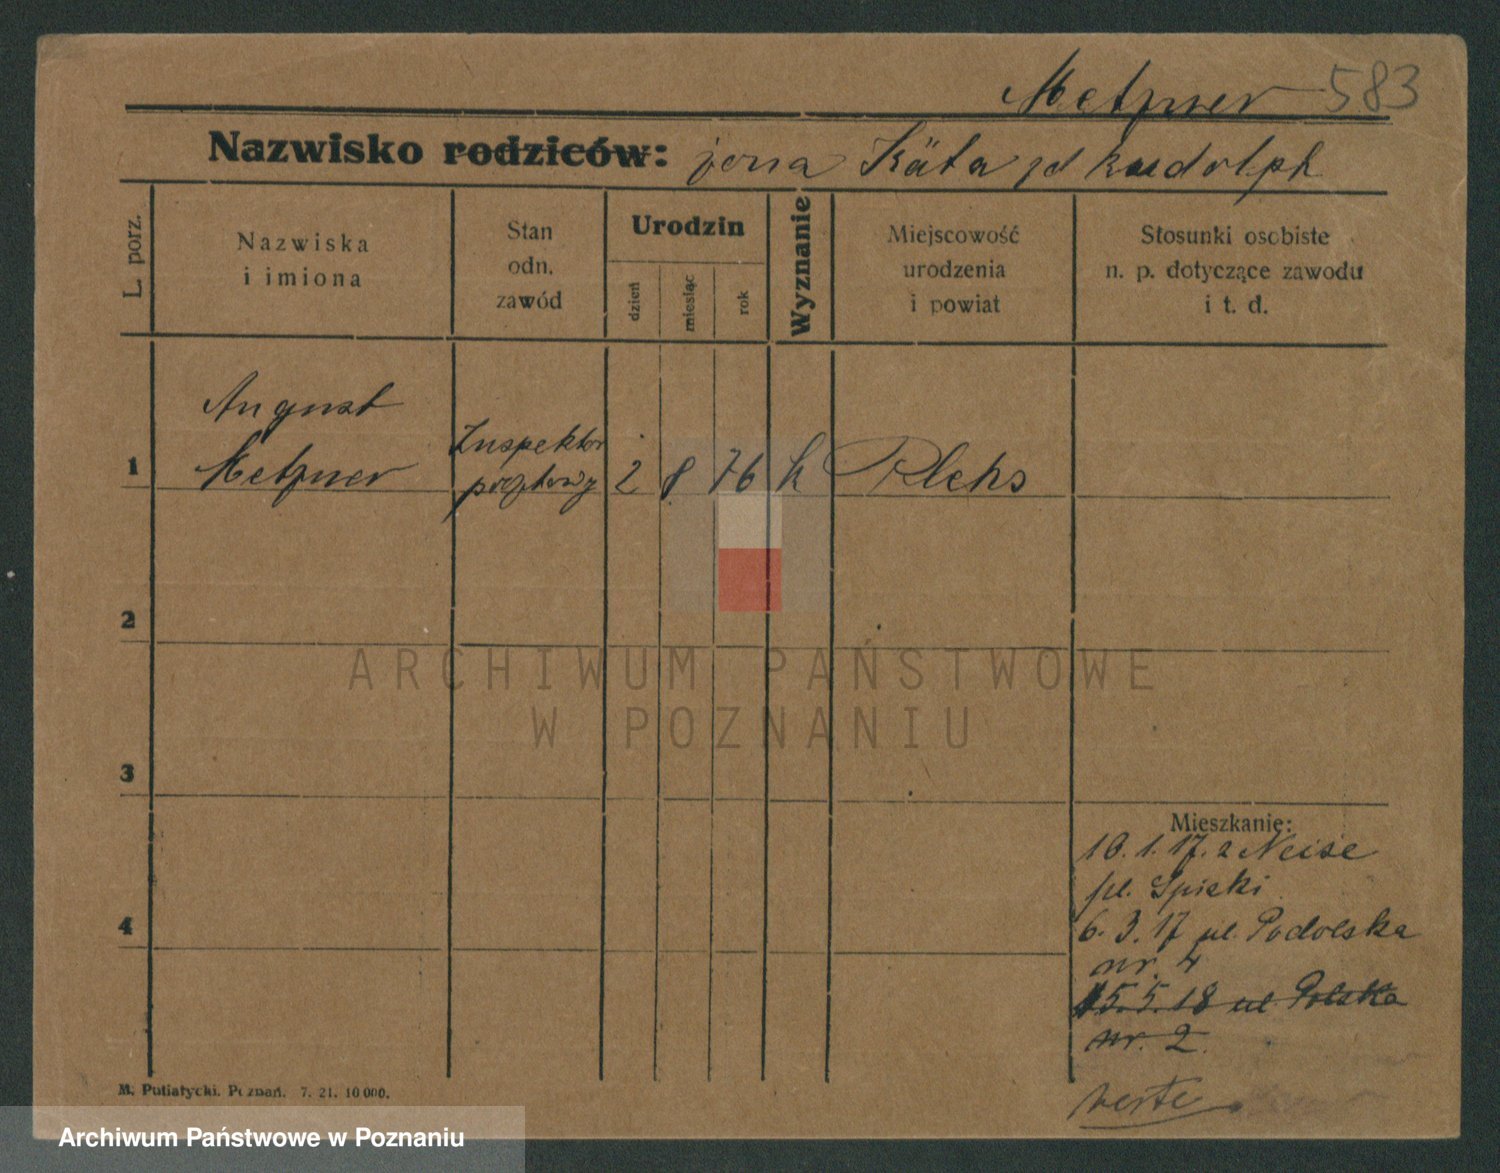 Metzner 583
Nazwisko rodziców: żona Käta zd Rudolph
L. porz.
Nazwiska
i imiona
Stan
odn.
zawód
Urodzin
dzień
miesiąc
rok
Wyznanie
Miejscowość
urodzenia
i powiat
Stosunki osobiste
n. p. dotyczące zawodu
i t. d.
August
1 Metzner Inspektor pocztowy 2 8 76 k Plehs
2
ARCHIWUM PAŃSTWOWE
W POZNANIU
3
Mieszkanie:
10. 1. 17. z Neise
pl. Spiski
4
6. 3. 17 ul. Podolska
nr. 4
15. 5. 18 ul. Polska
nr. 2.
verte
M. Putiatycki. Poznań. 7. 21. 10000.
Archiwum Państwowe w Poznaniu